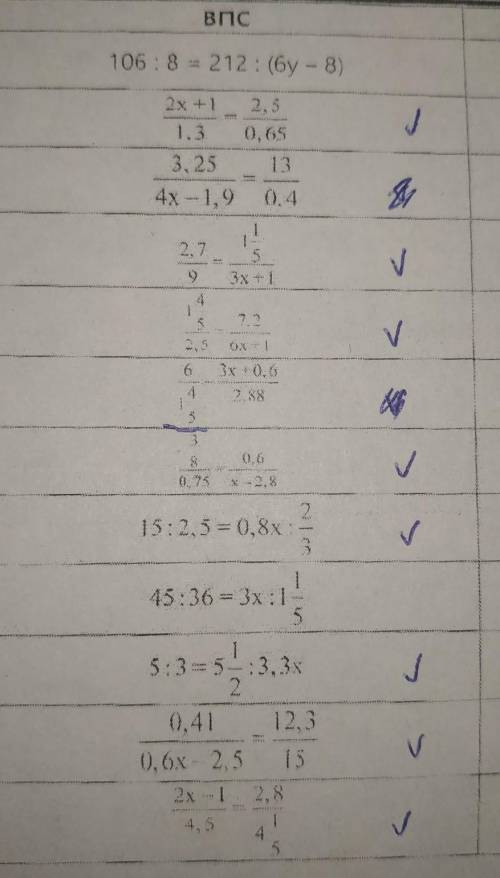 ВПС
106 : 8 = 212 : (6y – 8)
(2x + 1)/1.3 = 2,5/0,65 ✓
3,25/(4x – 1,9) = 13/0.4
2,7/9 = 1 1/5/(3x + 1) ✓
1 4/5/2,5 = 7.2/(6x – 1) ✓
6/1 4/5 = (3x + 0,6)/2.88
3/8/0,75 = 0,6/(x – 2,8) ✓
15 : 2,5 = 0,8x : 2/3 ✓
45 : 36 = 3x : 1 1/5
5 : 3 = 5 1/2 : 3,3x ✓
0,41/(0,6x – 2,5) = 12,3/15 ✓
(2x – 1)/4,5 = 2,8/4 1/5 ✓